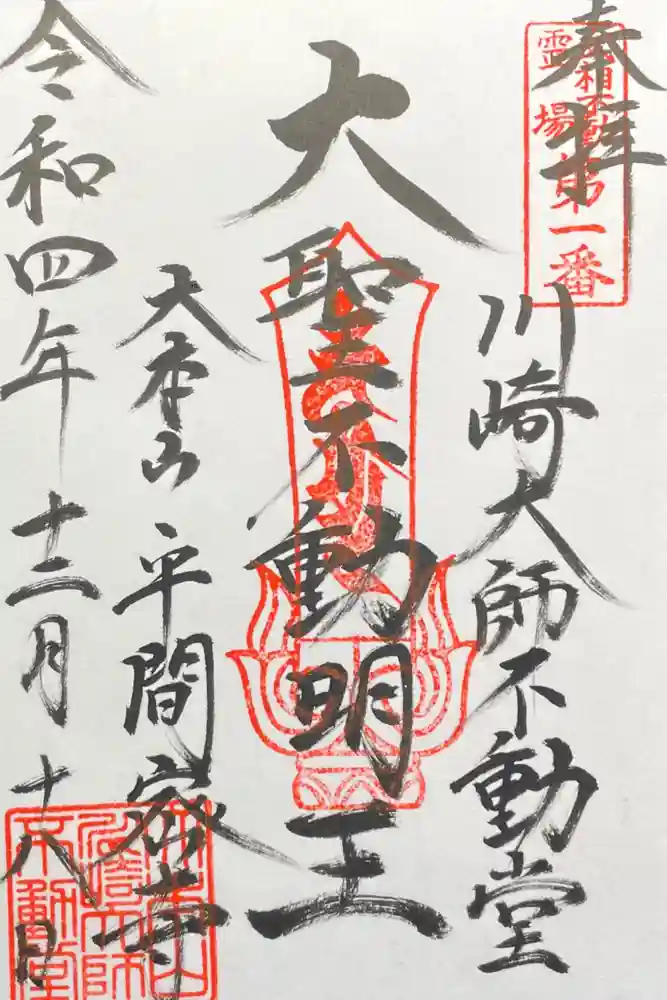 奉拝
武相不動
霊場
第一番
川崎大師不動堂
大聖不動明王
大本山平間寺
令和四年十二月十八日
不動堂